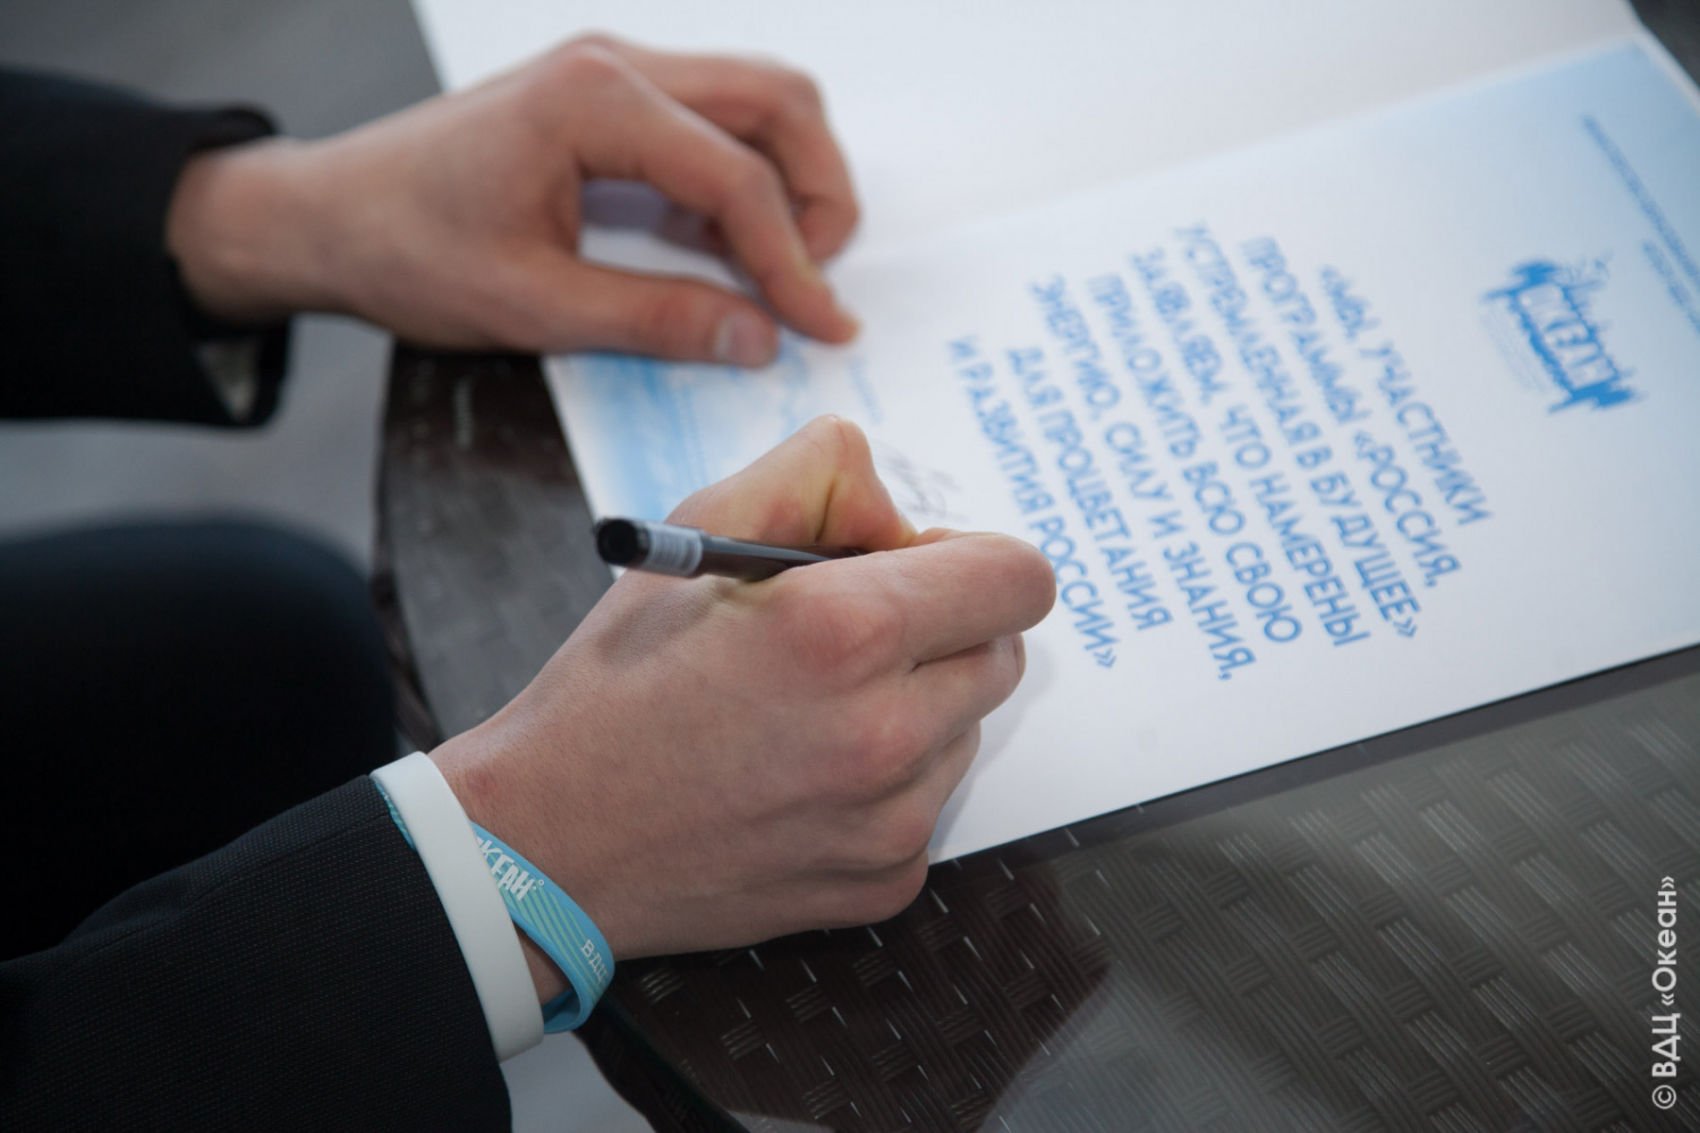 ОКЕАН
«МЫ, УЧАСТНИКИ
ПРОГРАММЫ «РОССИЯ,
УСТРЕМЛЕННАЯ В БУДУЩЕЕ»
ЗАЯВЛЯЕМ, ЧТО НАМЕРЕНЫ
ПРИЛОЖИТЬ ВСЮ СВОЮ
ЭНЕРГИЮ, СИЛУ И ЗНАНИЯ,
ДЛЯ ПРОЦВЕТАНИЯ
И РАЗВИТИЯ РОССИИ»
ОКЕАН
ВДЦ
© ВДЦ «Океан»